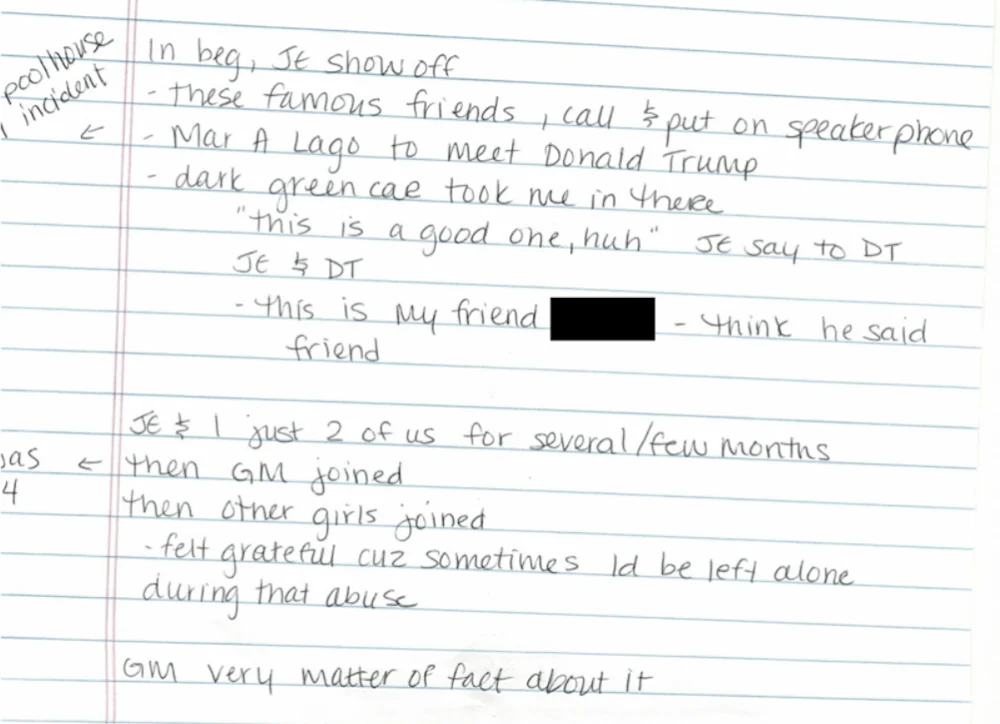 poolhouse
incident
In beg, JE show off
- these famous friends, call & put on speakerphone
← - Mar A Lago to meet Donald Trump
- dark green car took me in there
"this is a good one, huh" JE say to DT
JE & DT
- this is my friend - think he said
friend
JE & I just 2 of us for several/few months
← then GM joined
4 then other girls joined
- felt grateful cuz sometimes Id be left alone
during that abuse
GM very matter of fact about it